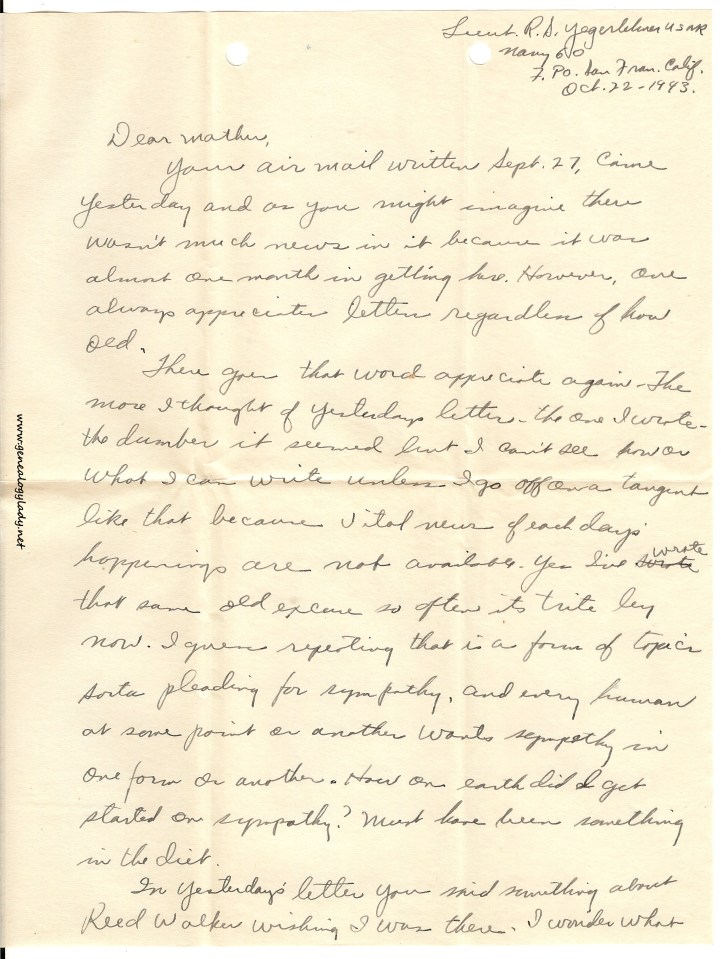 Lieut. R.S. Yegerlehner USNR
Navy 60
F. Po. San Fran. Calif.
Oct. 22 - 1943.
Dear mother,
Your air mail written Sept. 27, came
yesterday and as you might imagine there
wasn't much news in it because it was
almost one month in getting here. However, one
always appreciates letters regardless of how
old.
There goes that word appreciate again - The
more I thought of yesterdays letter - the one I wrote -
the dumber it seemed but I can't see how or
what I can write unless I go off on a tangent
like that because vital news of each days
happenings are not available. Yes I've wrote
that same old excuse so often its trite by
now. I guess repeating that is a form of topics
sorta pleading for sympathy, and every human
at some point or another wants sympathy in
one form or another. How on earth did I get
started on sympathy? Must have been something
in the diet.
In yesterdays' letter you said something about
Reed Walker wishing I was there. I wonder what
www.genealogylady.net